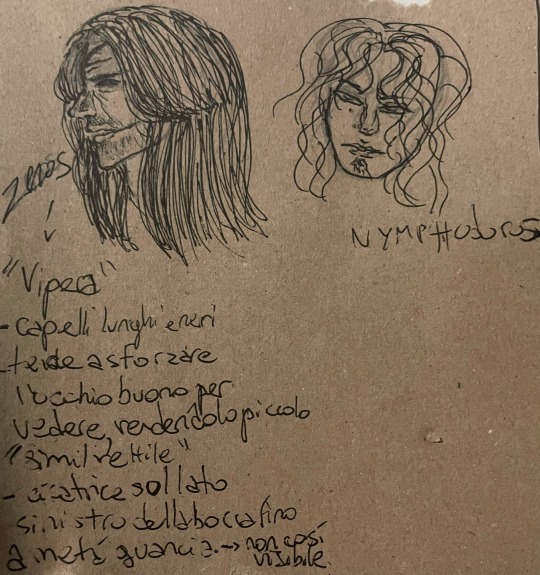 Zenos
NYMPHodoros
"Vipera"
- capelli lunghi e neri
- tende a sforzare
l'occhio buono per
vedere, rendendolo piccolo
"simil rettile"
- cicatrice sul lato
sinistro della bocca fino
a metà guancia. → non così
visibile.